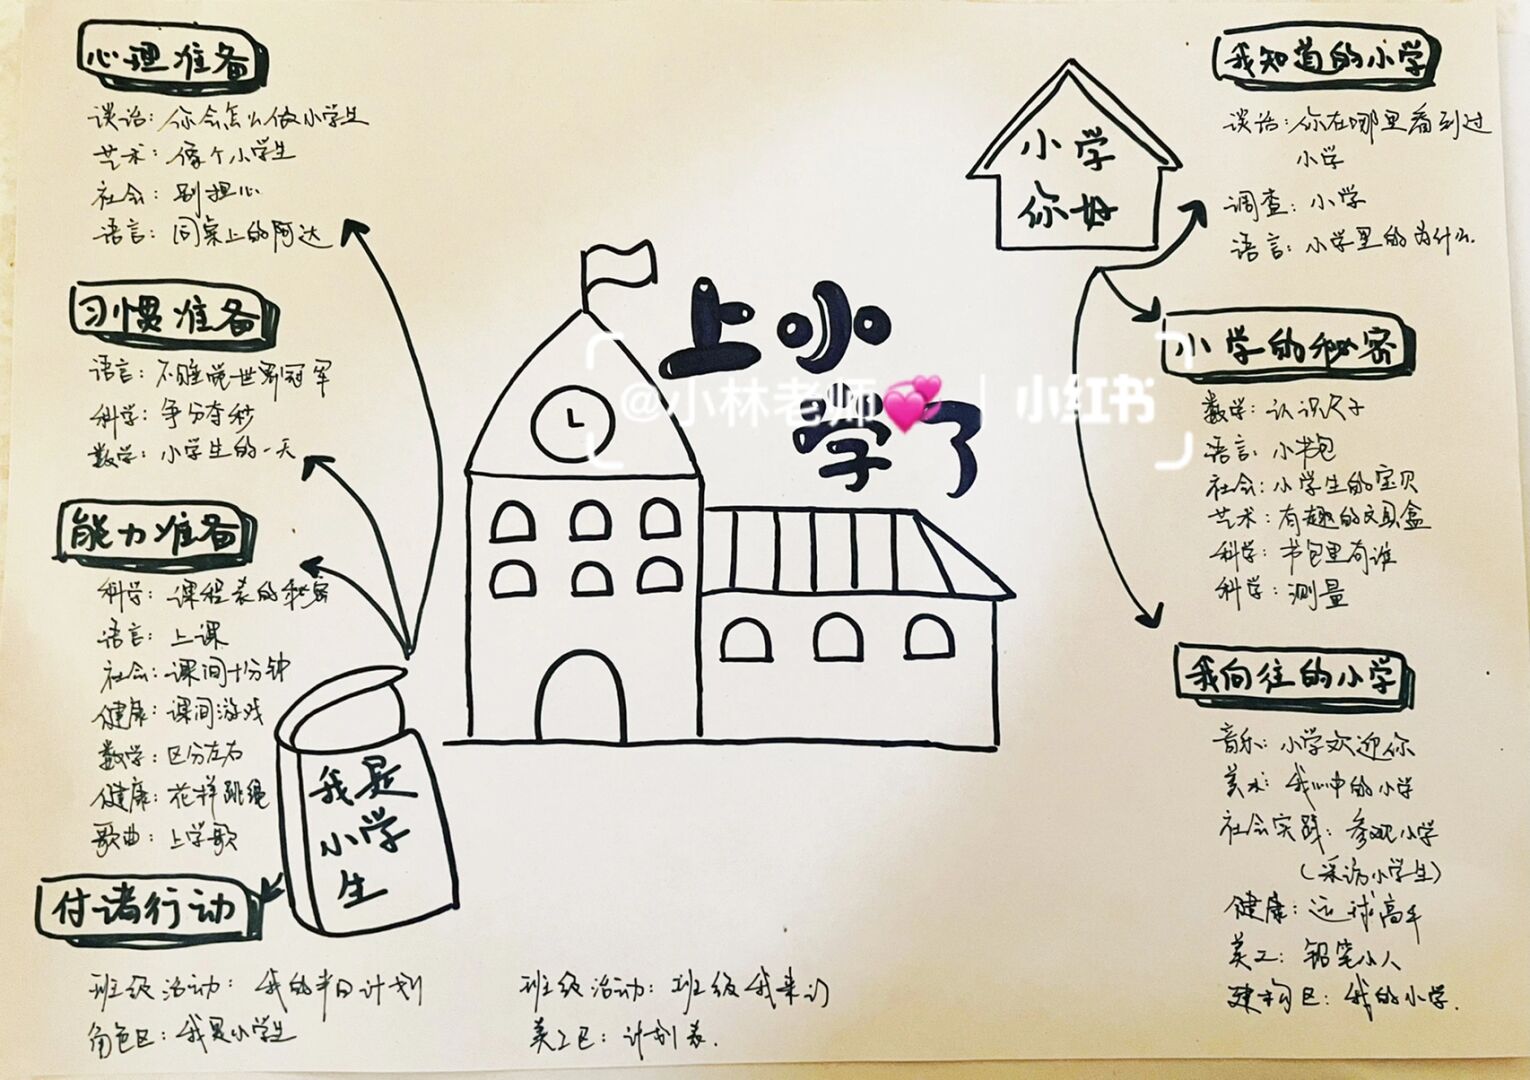 心理准备
谈话：你会怎么做小学生
艺术：像个小学生
社会：别担心
语言：同桌上的阿达
习惯准备
语言：不睡觉世界冠军
科学：争分夺秒
数学：小学生的一天
能力准备
科学：课程表的秘密
语言：上课
社会：课间十分钟
健康：课间游戏
数学：区分左右
健康：花样跳绳
歌曲：上学歌
我是
小学
生
付诸行动
班级活动：我的半日计划
角色区：我是小学生
班级活动：班级我来
美工区：计划表.
上小
学了
@小林老师 | 小红书
小学
你好
我知道的小学
谈话：你在哪里看到过
小学
调查：小学
语言：小学里的为什么.
小学的秘密
数学：认识尺子
语言：小书包
社会：小学生的宝贝
艺术：有趣的文具盒
科学：书包里有谁
科学：测量
我向往的小学
音乐：小学欢迎你
美术：我心中的小学
社会实践：参观小学
（采访小学生）
健康：运球高手
美工：铅笔小人
建构区：我的小学.